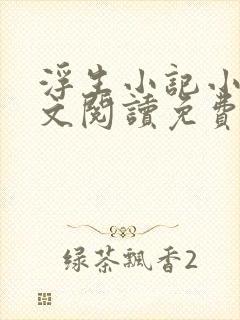 浮生小記小
文閱讀免費
绿茶飄香2